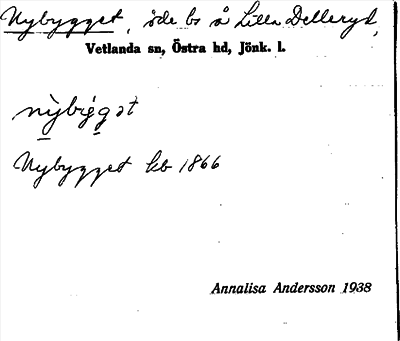 Nybygget, öde bs å Lilla Delleryd,
Vetlanda sn, Östra hd, Jönk. l.
Nybygget kb 1866
Annalisa Andersson 1938